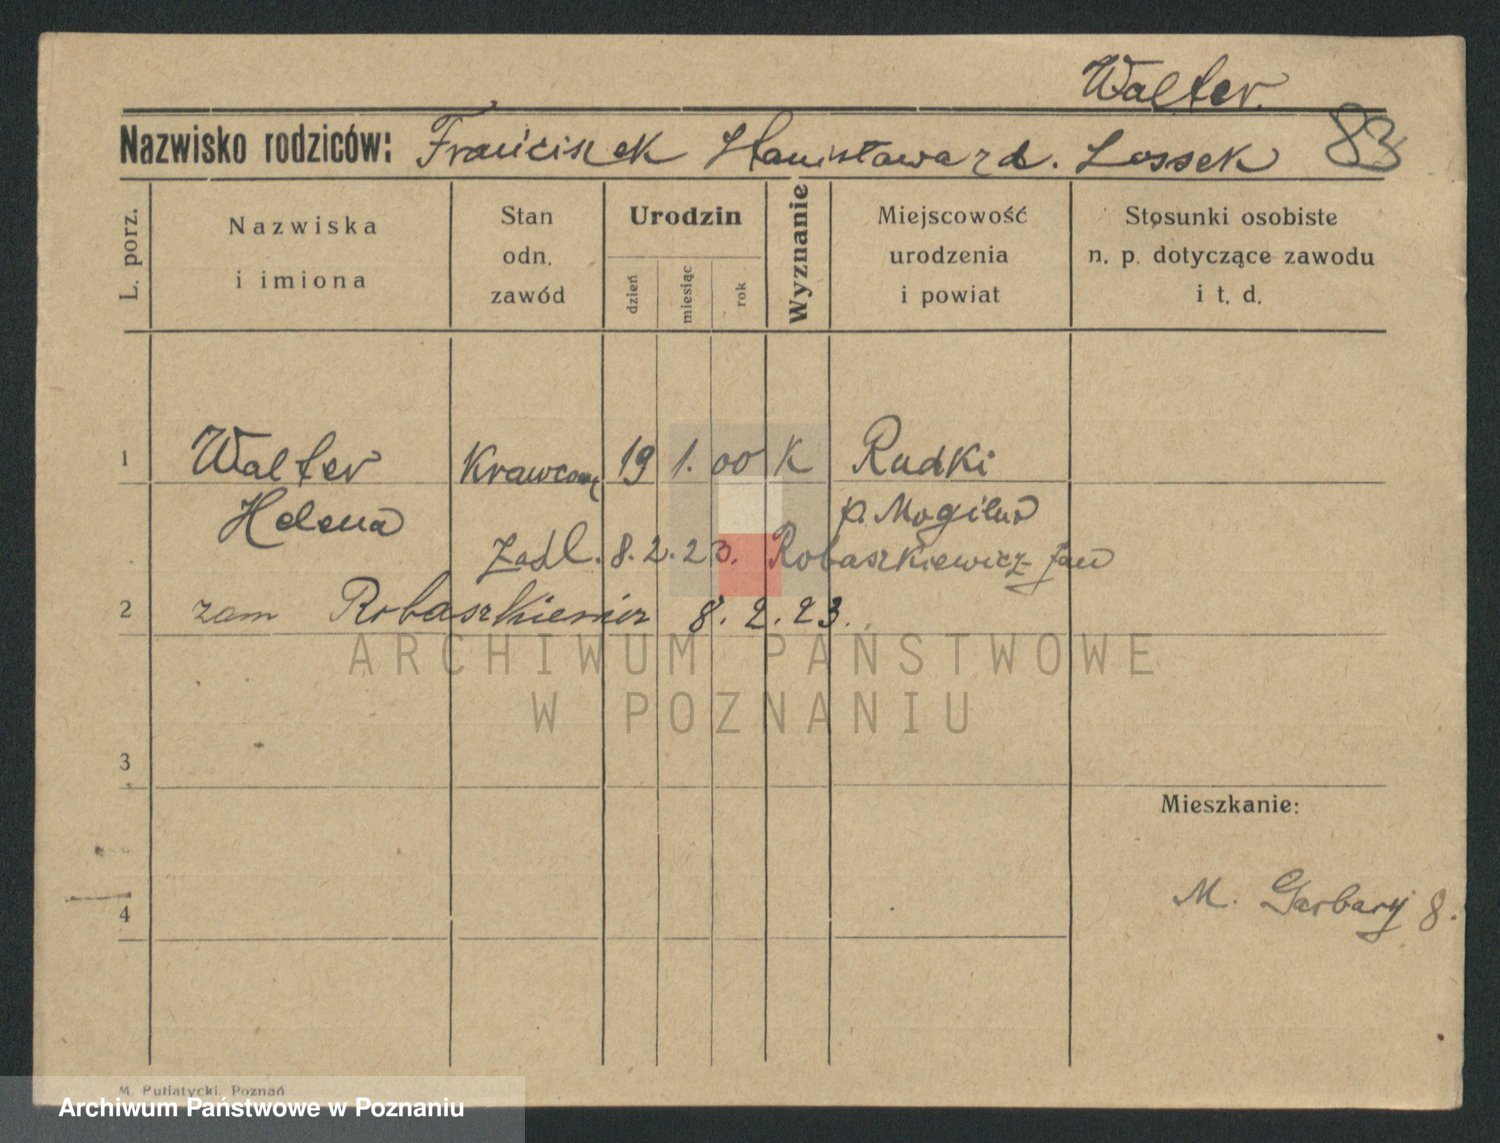 Walter.
Nazwisko rodziców: Franciszek Stanisława zd. Lossek 83
L. porz.
Nazwiska i imiona
Stan odn. zawód
Urodzin
dzień miesiąc rok
Wyznanie
Miejscowość urodzenia i powiat
Stosunki osobiste n. p. dotyczące zawodu i t. d.
1 Walter Krawcową 19 1. 00 K Rudki
Helena p. Mogilno
8.2.23. Robaszkiewicz Jan
2 zam Robaszkiewicz 8.2.23.
ARCHIWUM PAŃSTWOWE
W POZNANIU
3
Mieszkanie:
4
M. Garbary 8.
M. Putiatycki, Poznań
Archiwum Państwowe w Poznaniu